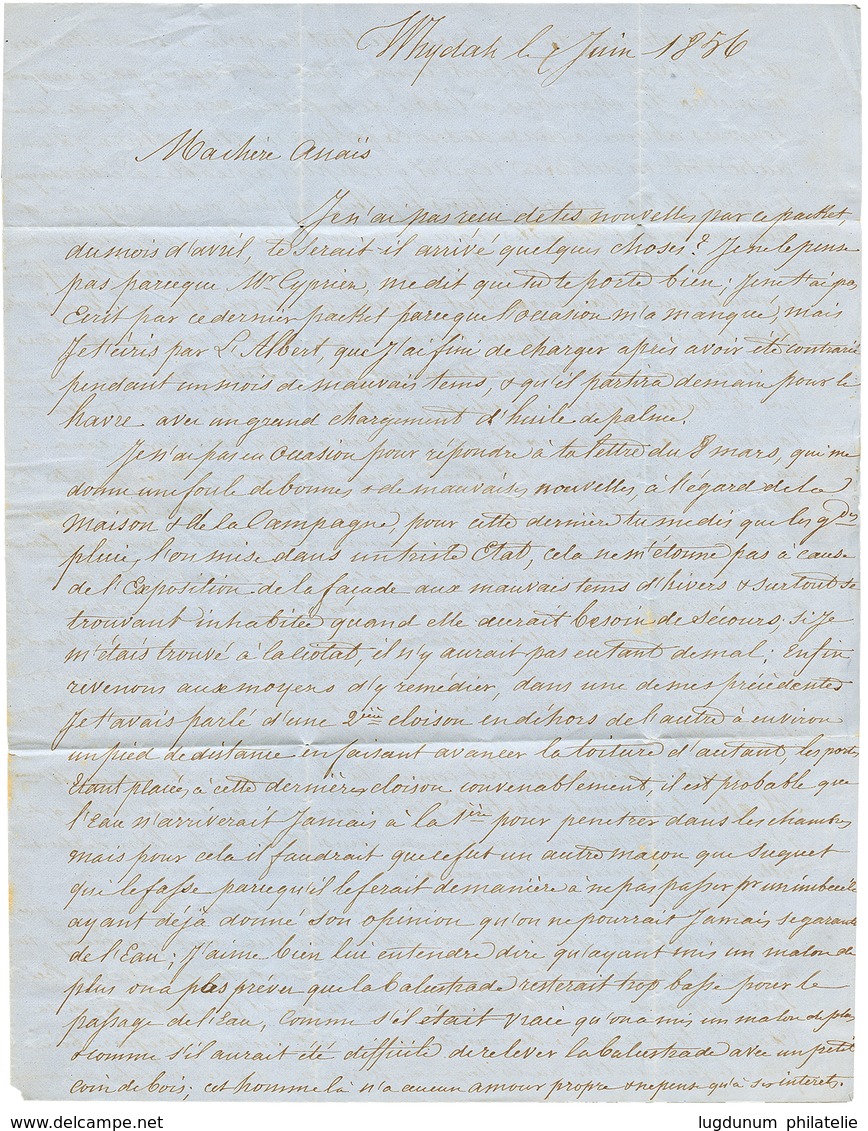 Whydah le Juin 1856
Ma chère Anaïs
Je n'ai pas recu de tes nouvelles par ce packet
du mois d'avril, te serait il arrivé quelques choses? Je ne le pense
pas parceque Mr Cyprien, me dit que tu te porte bien; Je ne t'ai pas
Ecrit par ce dernier packet parceque l'occasion m'a manqué, mais
Je t'ecris par L'Albert, que J'ai fini de charger après avoir été contrarié
pendant un mois de mauvais tems, & qu'il partira demain pour le
havre avec un grand chargement d'huile de palme.
Je n'ai pas eu Occasion pour répondre à ta lettre du 8 mars, qui me
donne une foule de bonnes & de mauvaises nouvelles, à l'égard de la
Maison & de la Campagne, pour cette derniere tu me dis que les gdes
pluies l'on mise dans un triste Etat, cela ne m'étonne pas à cause
de l'Exposition de la façade aux mauvais tems d'hivers & surtout se
trouvant inhabitée quand elle aurait besoin de sécours; si Je
m'étais trouvé à la Ciotat, il n'y aurait pas eu tant de mal; Enfin
rivenons aux moyens d'y remédier, dans une de mes précédentes
Je t'avais parlé d'une 2ème cloison en déhors de l'autre à environ
un pied de distance en faisant avancer la toiture d'autant, les portes
Etant placées à cette dernière cloison convenablement, il est probable que
l'Eau n'arriverait Jamais à la 1ère pour penetrer dans les chambres
mais pour cela il faudrait que ce fut un autre maçon que Suquet
qui le fasse parcequ'il le ferait de manière à ne pas passer pr un imbecile
ayant déjà donné son opinion qu'on ne pourrait Jamais se garantir
de l'Eau; J'aime bien lui entendre dire qu'ayant mis un malon de
plus on a pas prévu que la balustrade resterait trop basse pour le
passage de l'Eau, comme s'il était vraie qu'on a mis un malon de plus
& comme s'il aurait été difficile de relever la balustrade avec un petit
coin de bois; cet homme là n'a aucun amour propre & ne pense qu'à ses interets.
www.delcampe.net
lugdunum philatelie